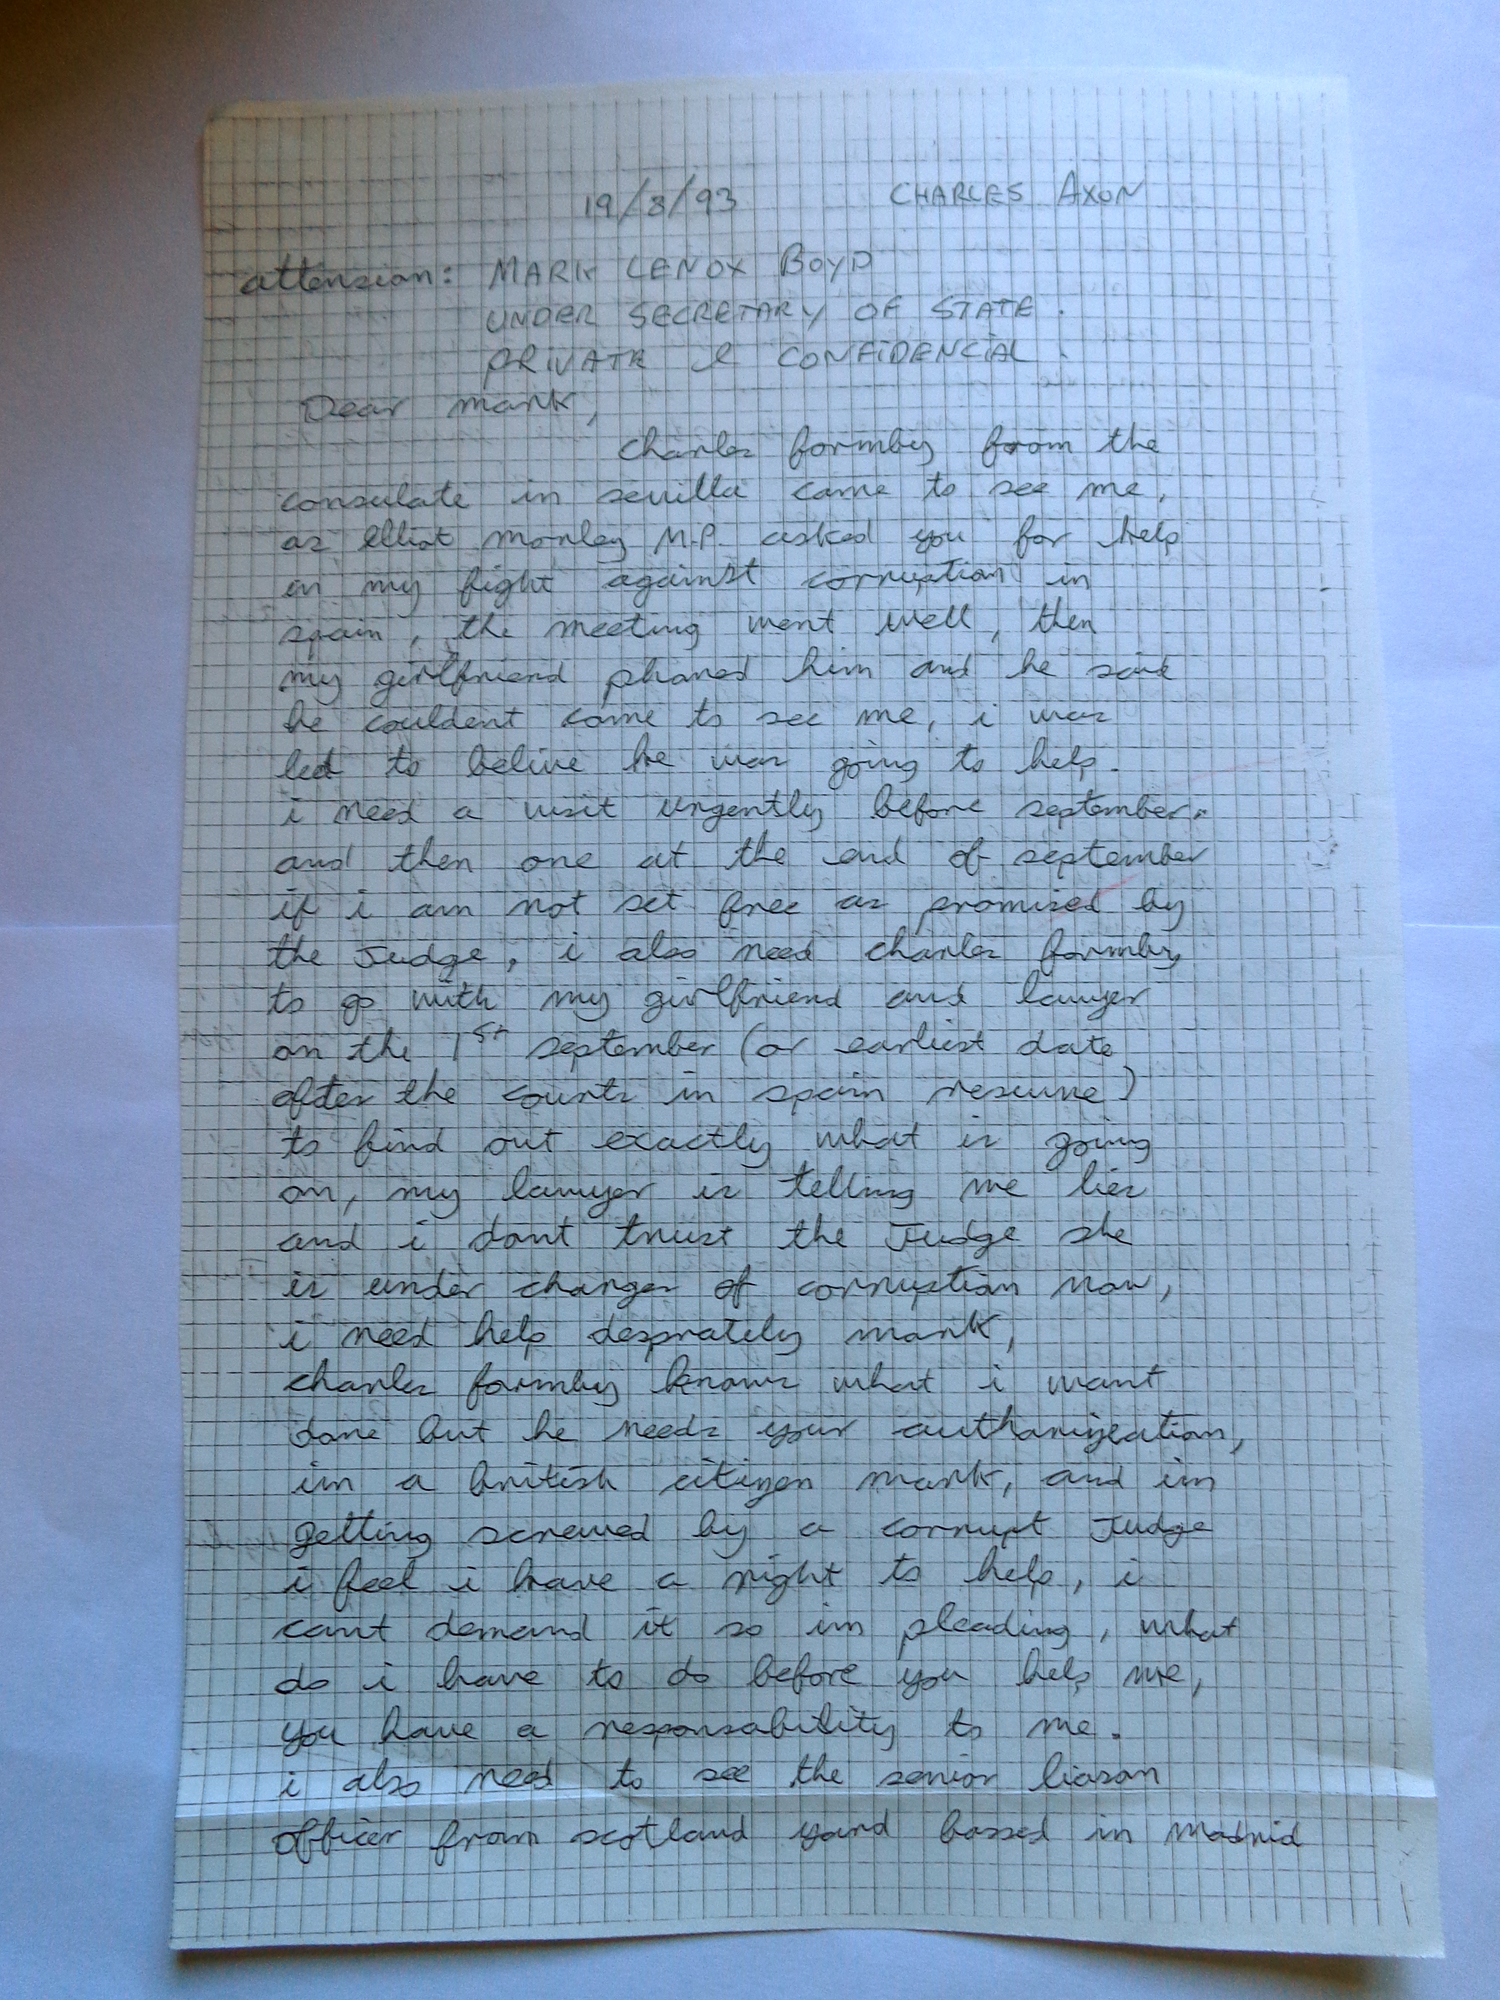 19/8/93 CHARLES AXON
attension: MARK LENOX BOYD
UNDER SECRETARY OF STATE.
PRIVATE & CONFIDENCIAL.
Dear mark,
charles formby from the
consulate in sevilla came to see me,
as elliot morley M.P. asked you for help
in my fight against corruption in
spain, the meeting went well, then
my girlfriend phoned him and he said
he couldent come to see me, i was
led to belive he was going to help.
i need a visit urgently before september.
and then one at the end of september
if i am not set free as promised by
the Judge, i also need charles formby
to go with my girlfriend and lawyer
on the 1st september (or earliest date
after the courts in spain resume)
to find out exactly what is going
on, my lawyer is telling me lies
and i dont trust the Judge she
is under charges of corruption now,
i need help desprately mark,
charles formby knows what i want
done but he needs your authorization,
im a british citizen mark, and im
getting screwed by a corrupt Judge
i feel i have a right to help, i
cant demand it so im pleading, what
do i have to do before you help me,
you have a responsability to me.
i also need to see the senior liason
officer from scotland yard bassed in madrid